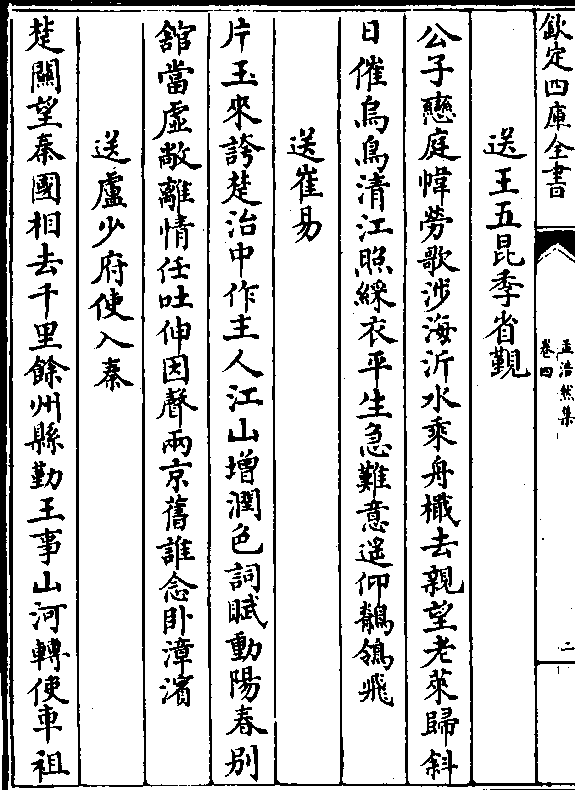 欽定四庫全書
孟浩然集
卷四
二
送王五昆季省覲
公子戀庭幃勞歌涉海沂水乘舟檝去親望老萊歸斜
日催烏鳥清江照綵衣平生急難意遥仰鶺鴒飛
送崔易
片玉來誇楚治中作主人江山增潤色詞賦動陽春别
舘當虚敞離情任吐伸因聲兩京舊誰念卧漳濱
送盧少府使入秦
楚闗望秦國相去千里餘州縣勤王事山河轉使車祖